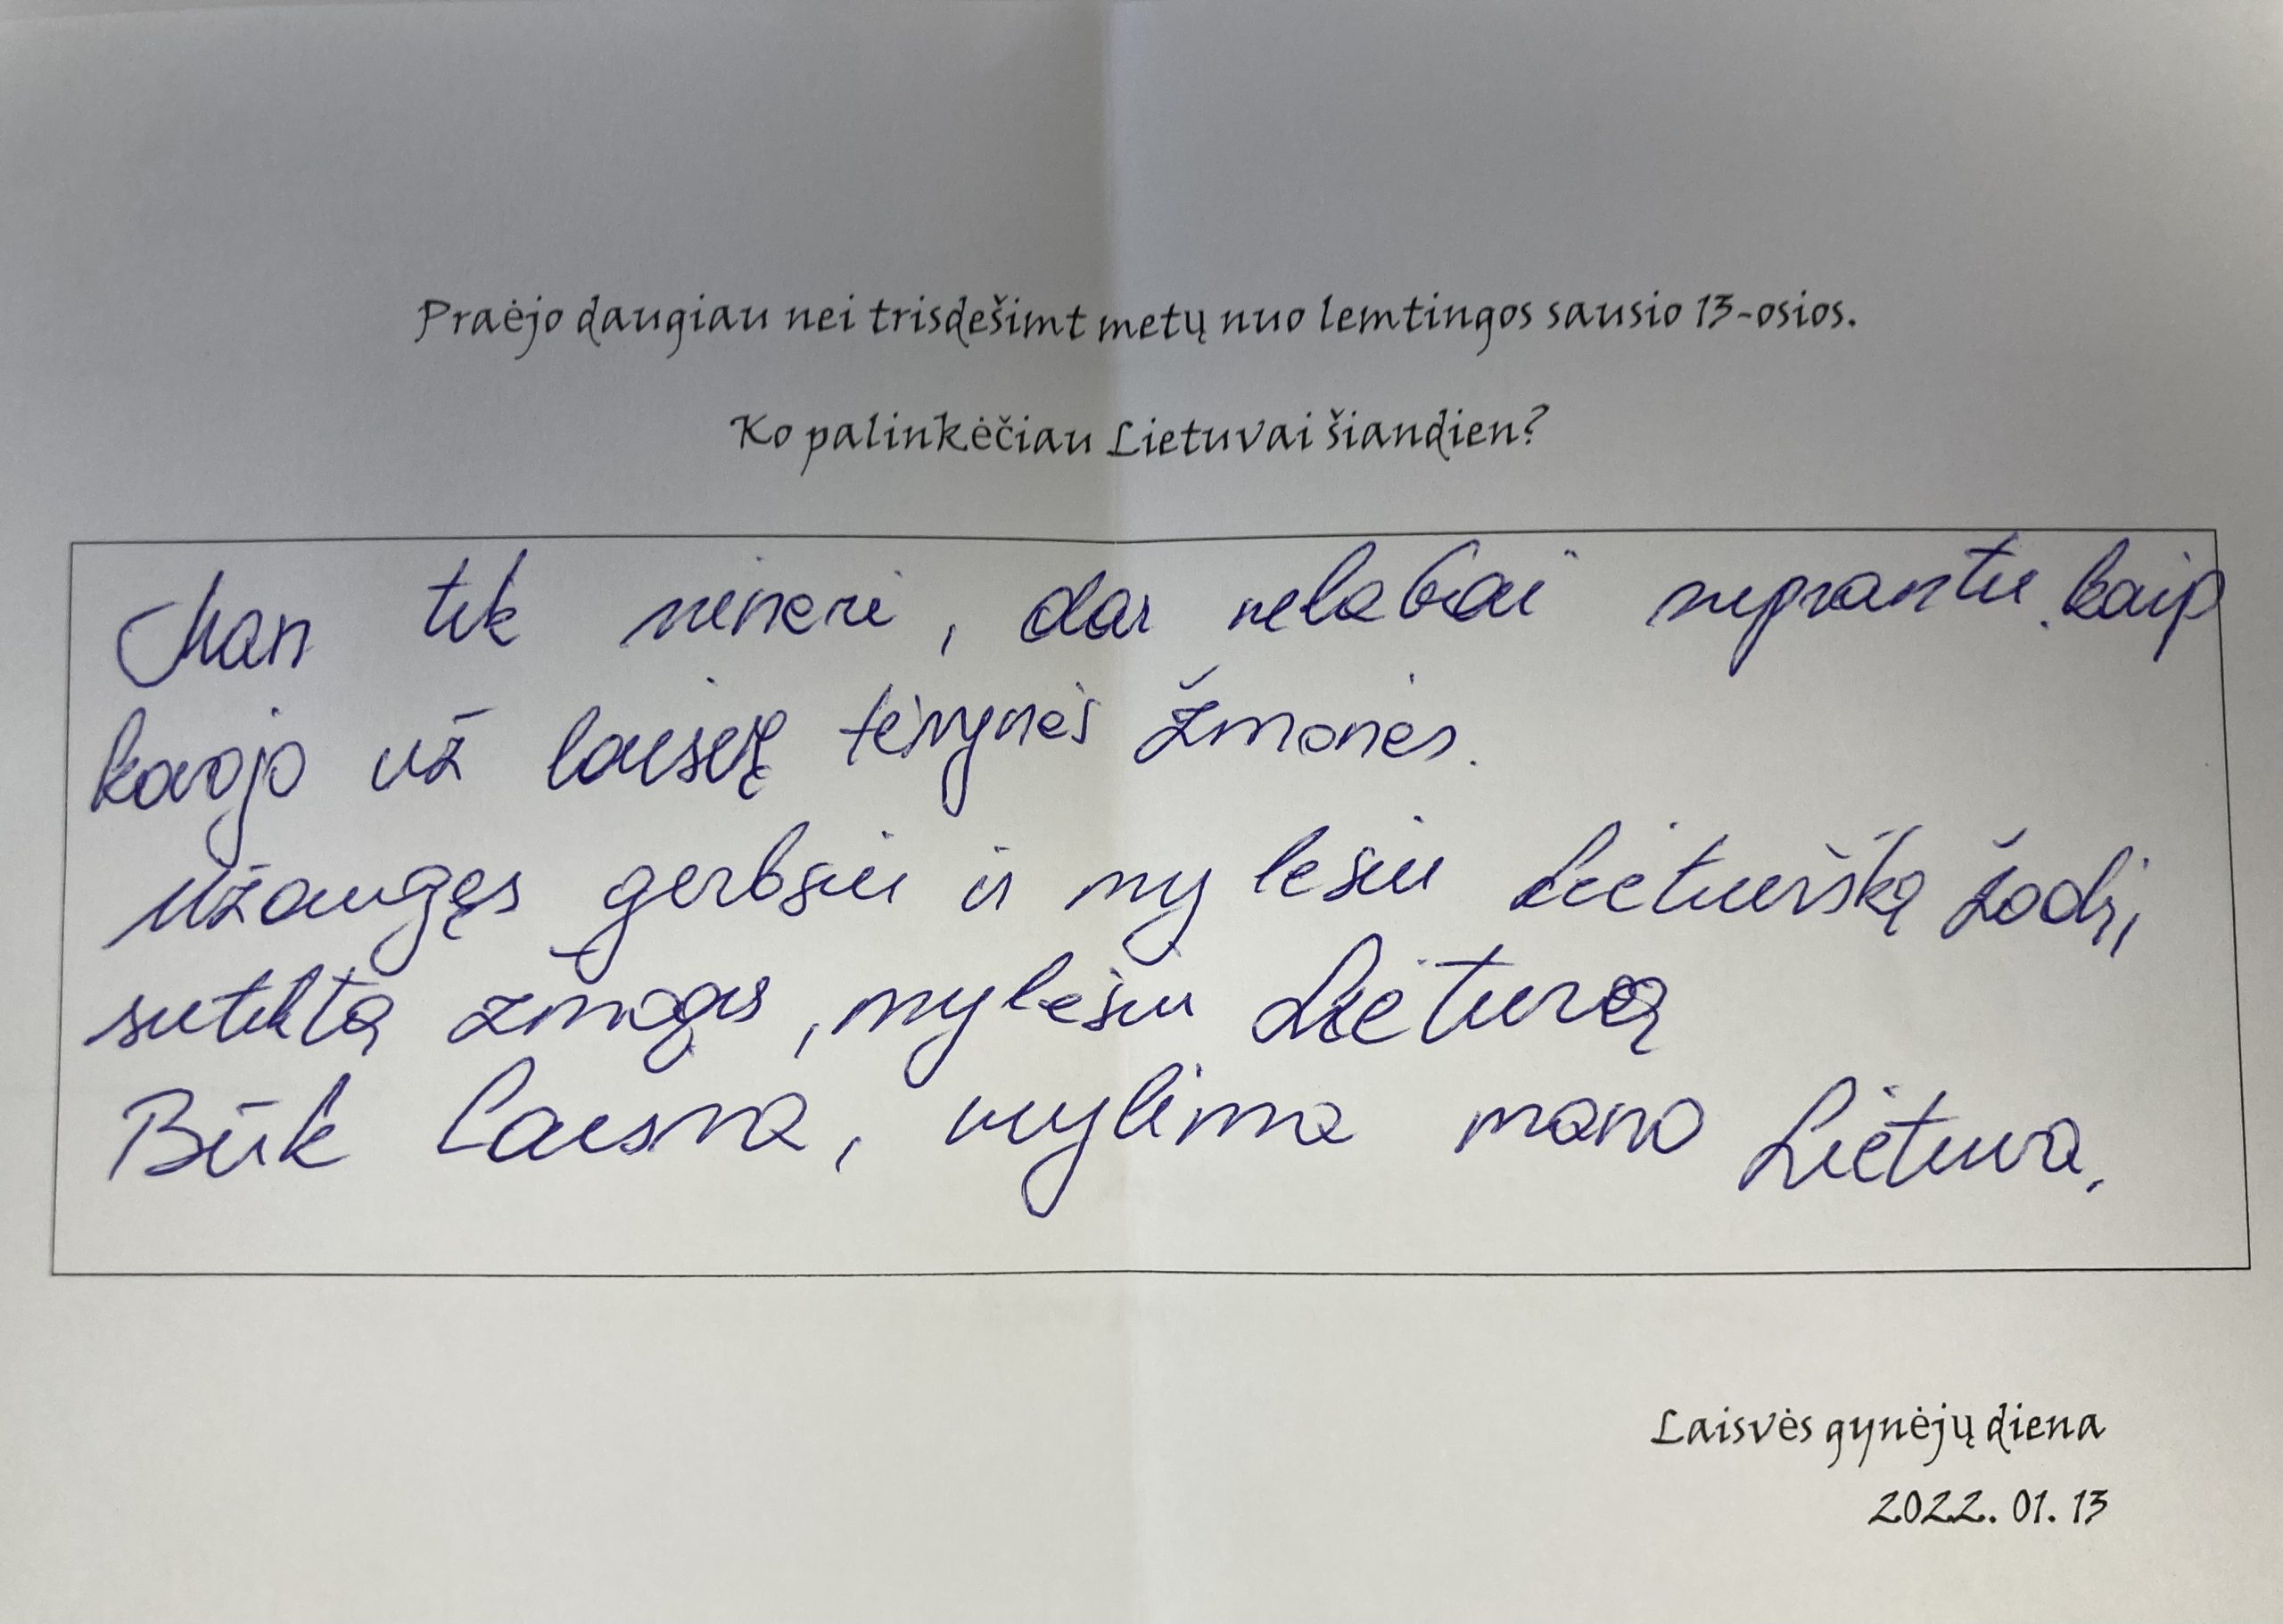 Praėjo daugiau nei trisdešimt metų nuo lemtingos sausio 13-osios.
Ko palinkėčiau Lietuvai šiandien?
Man tik vieneri, dar nelabai suprantu kaip
kovojo už laisvę tėvynės žmonės.
Užaugęs gerbsiu ir mylėsiu Lietuvišką žodį,
sutiktą žmogų, mylėsiu Lietuvą
Būk Laisva, mylima mano Lietuva.
Laisvės gynėjų diena
2022. 01. 13